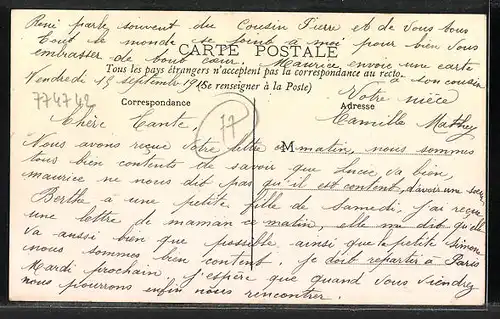 René parle souvent du Cousin Pierre et de vous tous
Tout le monde se joint à moi pour bien vous
embrasser de tout cœur. Maurice envoie une carte
à son cousin
CARTE POSTALE
Tous les pays étrangers n'acceptent pas la correspondance au recto.
(Se renseigner à la Poste)
Vendredi 15 septembre
Votre nièce
Camille Mathey
774742
Correspondance
Adresse
77
M
Chère Tante,
Nous avons reçue votre lettre ce matin, nous sommes
tous bien contents de savoir que Luce va bien,
maurice ne nous dit pas qu'il est content d'avoir une sœur
Berthe à une petite fille de Samedi, j'ai reçue
une lettre de maman ce matin, elle me dit qu'elle
va aussi bien que possible, ainsi que la petite Simone
nous sommes bien content je doit repartir à Paris
Mardi prochain, j'espère que quand vous viendrez
nous pourrons enfin nous rencontrer.